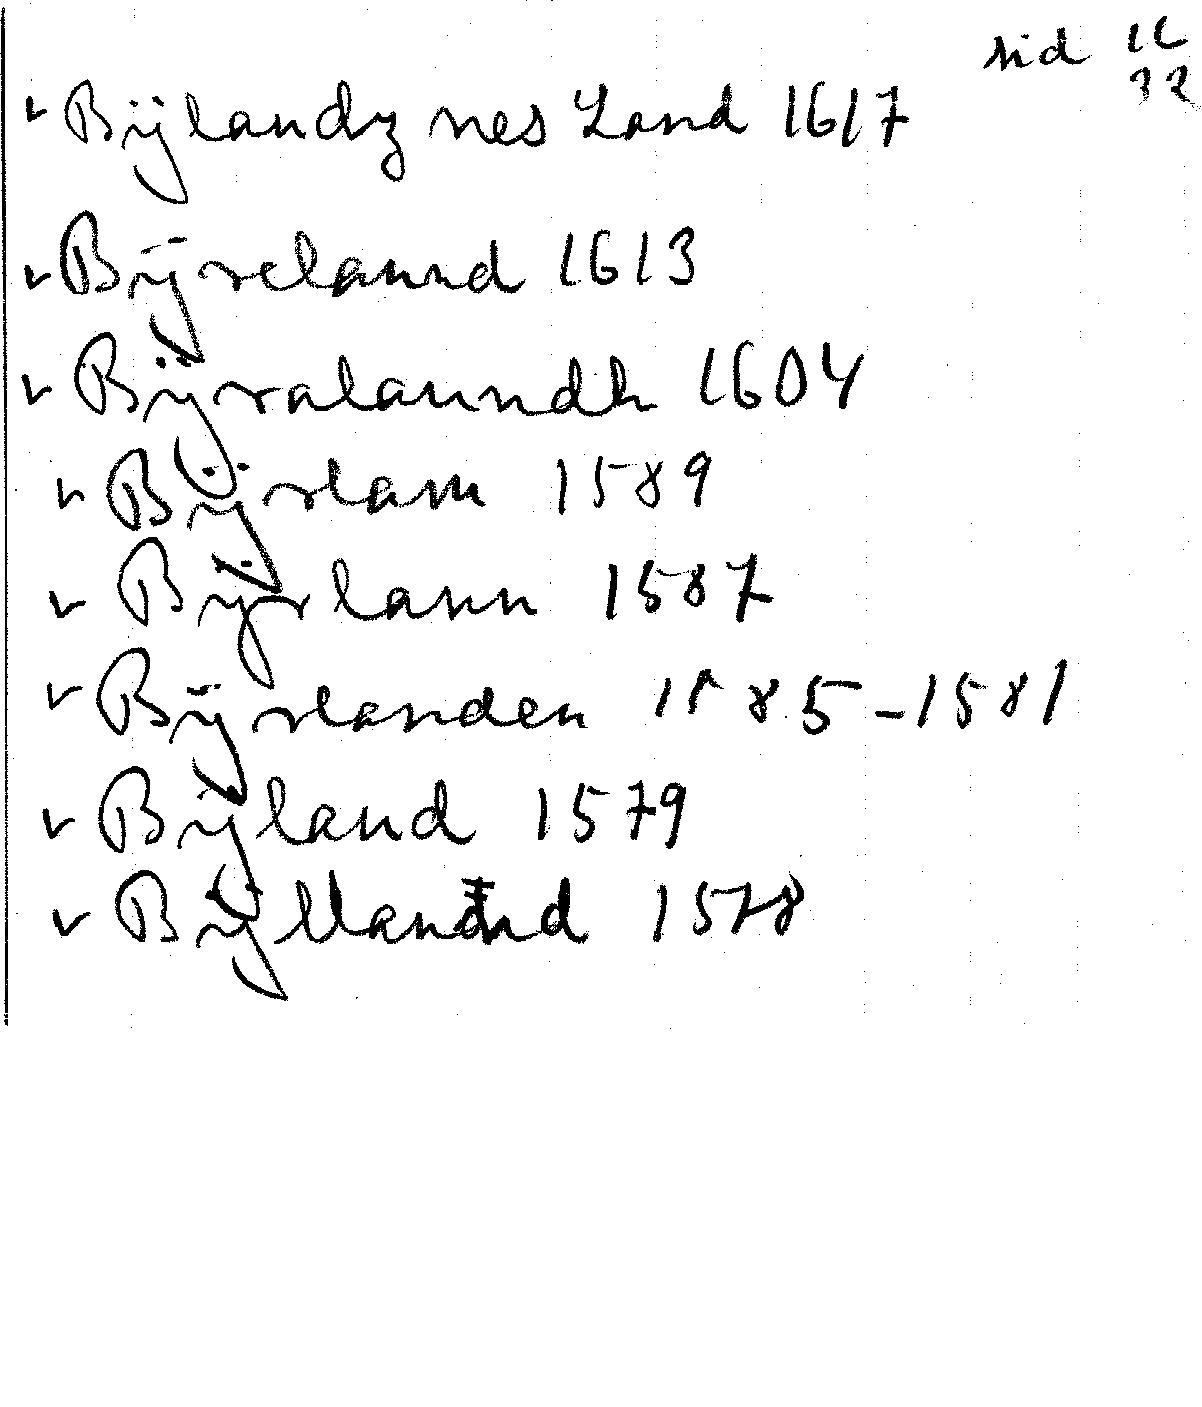 sid 16
32
✓ Bÿlandz nes Land 1617
✓ Bÿrelannd 1613
✓ Bÿralaunndh 1604
✓ Bÿrlam 1589
✓ Bÿrlann 1587
✓ Bÿrlanden 1585-1581
✓ Bÿland 1579
✓ Bÿlland 1578